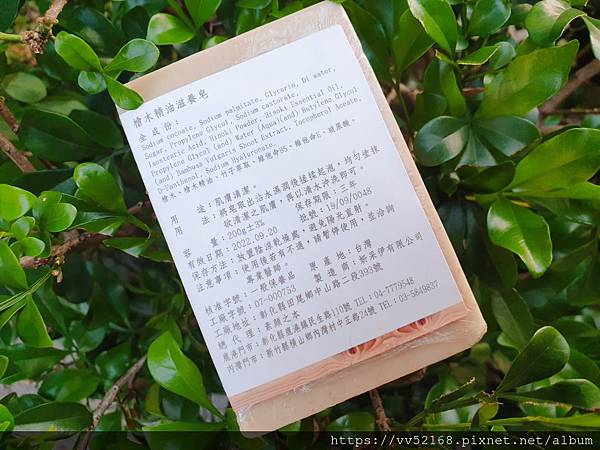 檜木精油滋養皂
全成份：
Sodium cocoate, Sodium palmitate, Glycerin, DI water,
Sugar, Propylene Glycol, Sodium castorate,
Isostearic Acid, Hinoki Powder, Hinoki Essential Oil,
Propylene Glycol (and) Water (Aqua)(and) Butylene Glycol
(and) Bambusa Vulgaris Shoot Extract, Tocopherol Acetate,
D-Panthenol, Sodium Hyaluronate.
檜木、檜木精油、竹子萃取、維他命B5、維他命E、玻尿酸。
用　途：肌膚清潔。
用　法：將皂取出沾水濕潤後搓揉起泡，均勻塗抹
欲清潔之肌膚，再以清水沖洗即可。
容　量：200g±3%　保存期限：三年
有效日期：2022.09.20　批號：19/09/0048
保存方法：放置陰涼乾燥處，避免陽光直射。
注意事項：使用後若有不適，請暫停使用，並洽詢
專業醫師。
核准字號：一般保養品　原產地：台灣
工廠字號：07-000753　製造商：斯采伊有限公司
工廠地址：彰化縣田尾鄉中山路二段393號
總代理：素顏之本
鹿港門市：彰化縣鹿港鎮民生路110號 TEL：04-7779548
內灣門市：新竹縣橫山鄉內灣村中正路24號 TEL：03-5849837
https://vv52168.pixnet.net/album